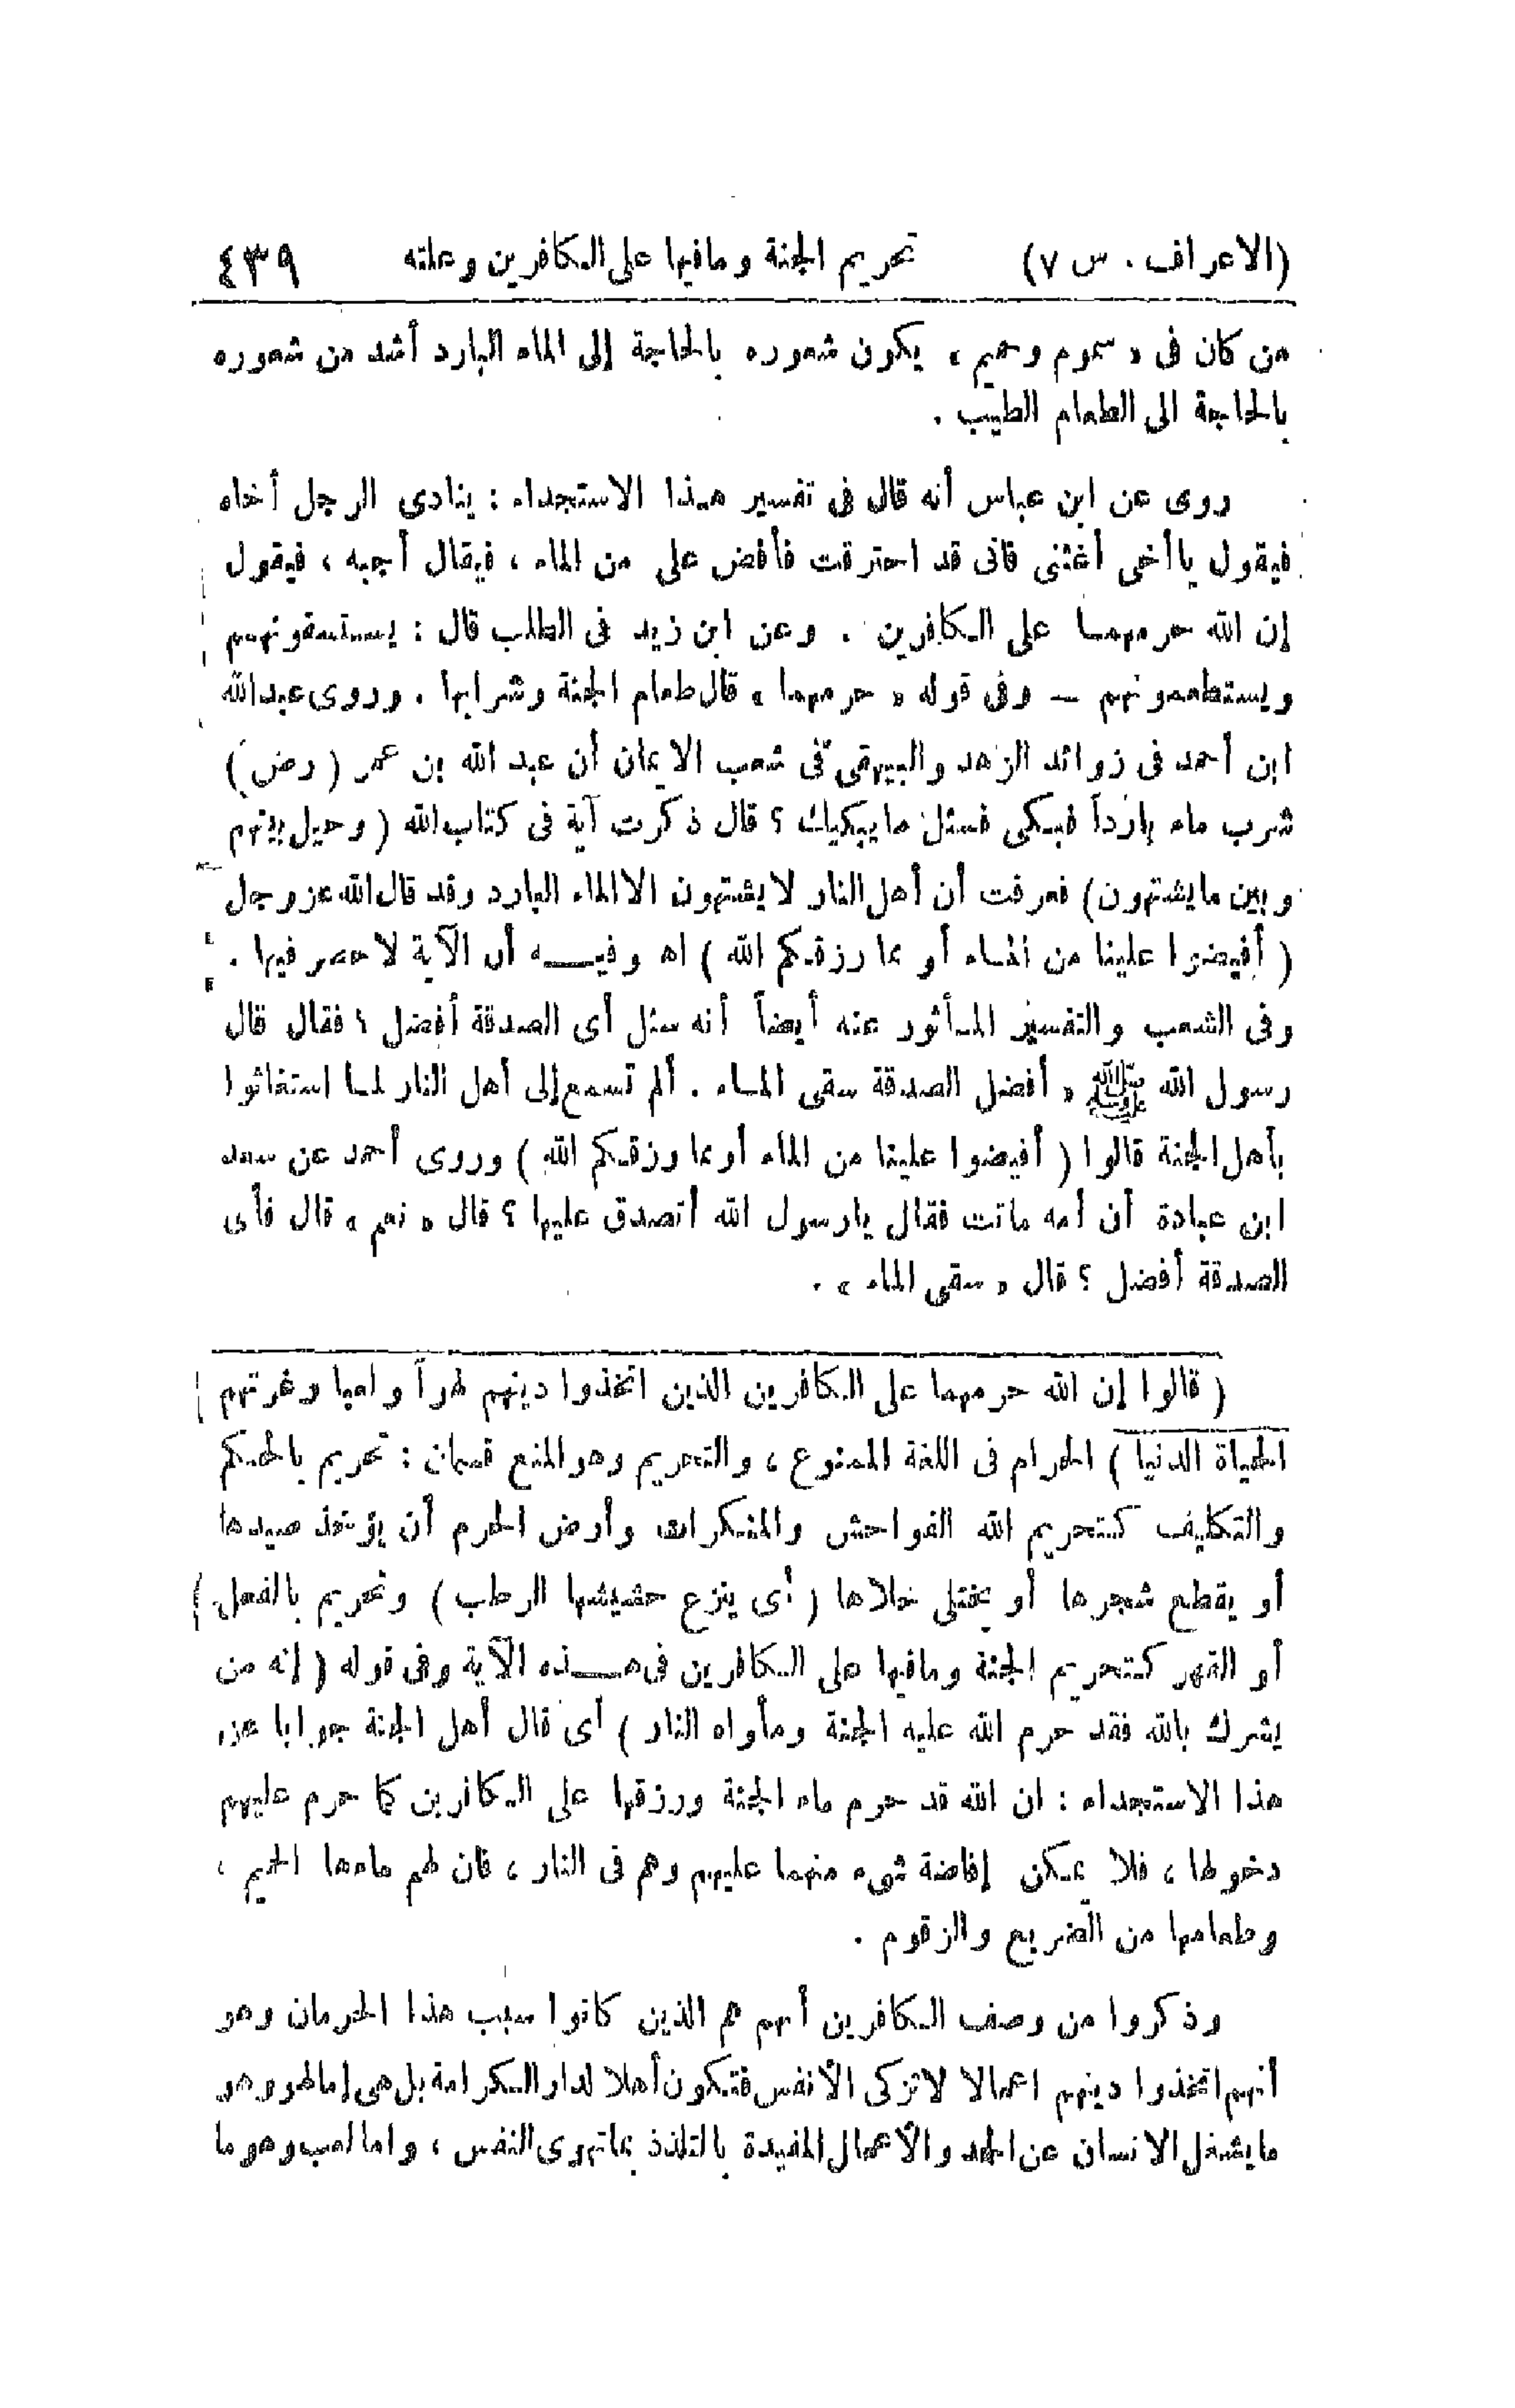 (الاعراف . س ٧) تحريم الجنة ومافيها على الكافرين وعلته ٤٣٩
من كان فى « سموم وحميم » يكون شعوره بالحاجة إلى الماء البارد أشد من شعوره
بالحاجة الى الطعام الطيب .
روى عن ابن عباس أنه قال فى تفسير هذا الاستجداء : ينادى الرجل أخاه
فيقول ياأخى أغثنى فانى قد احترقت فأفض على من الماء ، فيقال أجبه ، فيقول
إن الله حرمهما على الكافرين . وعن ابن زيد فى الطلب قال : يستسقونهم
ويستطعمونهم — وفى قوله « حرمهما » قال طعام الجنة وشرابها . وروى عبدالله
ابن أحمد فى زوائد الزهد والبيهقى فى شعب الايمان أن عبد الله بن عمر (رض)
شرب ماء بارداً فبكى فسئل مايبكيك ؟ قال ذكرت آية فى كتاب الله (وحيل بينهم
وبين مايشتهون) فعرفت أن أهل النار لايشتهون الا الماء البارد وقد قال الله عز وجل
( أفيضوا علينا من الماء أو مما رزقكم الله ) اه وفيه أن الآية لاحصر فيها .
وفى الشعب والتفسير المأثور عنه أيضاً أنه سئل أى الصدقة أفضل ؟ فقال قال
رسول الله ﷺ « أفضل الصدقة سقى الماء . ألم تسمع إلى أهل النار لما استغاثوا
بأهل الجنة قالوا ( أفيضوا علينا من الماء أو مما رزقكم الله ) وروى أحمد عن سعد
ابن عبادة أن أمه ماتت فقال يارسول الله أتصدق عليها ؟ قال « نعم » قال فأى
الصدقة أفضل ؟ قال « سقى الماء » .
( قالوا إن الله حرمهما على الكافرين الذين اتخذوا دينهم لهواً ولعبا وغرتهم
الحياة الدنيا ) الحرام فى اللغة الممنوع ، والتحريم وهو المنع قسمان : تحريم بالحكم
والتكليف كتحريم الله الفواحش والمنكرات وأرض الحرم أن يؤخذ صيدها
أو يقطع شجرها أو يختلى خلاها ( أى ينزع حشيشها الرطب ) وتحريم بالفعل
أو القهر كتحريم الجنة ومافيها على الكافرين فى هذه الآية وفى قوله ( إنه من
يشرك بالله فقد حرم الله عليه الجنة ومأواه النار ) أى قال أهل الجنة جوابا عن
هذا الاستجداء : ان الله قد حرم ماء الجنة ورزقها على الكافرين كما حرم عليهم
دخولها ، فلا يمكن إفاضة شىء منهما عليهم وهم فى النار ، فان لهم ماءها الحميم ،
وطعامها من الضريع والزقوم .
وذكروا من وصف الكافرين أنهم هم الذين كانوا سبب هذا الحرمان وهو
أنهم اتخذوا دينهم اعمالا لاتزكى الأنفس فتكون أهلا لدار الكرامة بل هى إما لهو وهو
مايشغل الانسان عن الجد والأعمال المفيدة بالتلذذ بماتهوى النفس ، واما لعب وهو ما